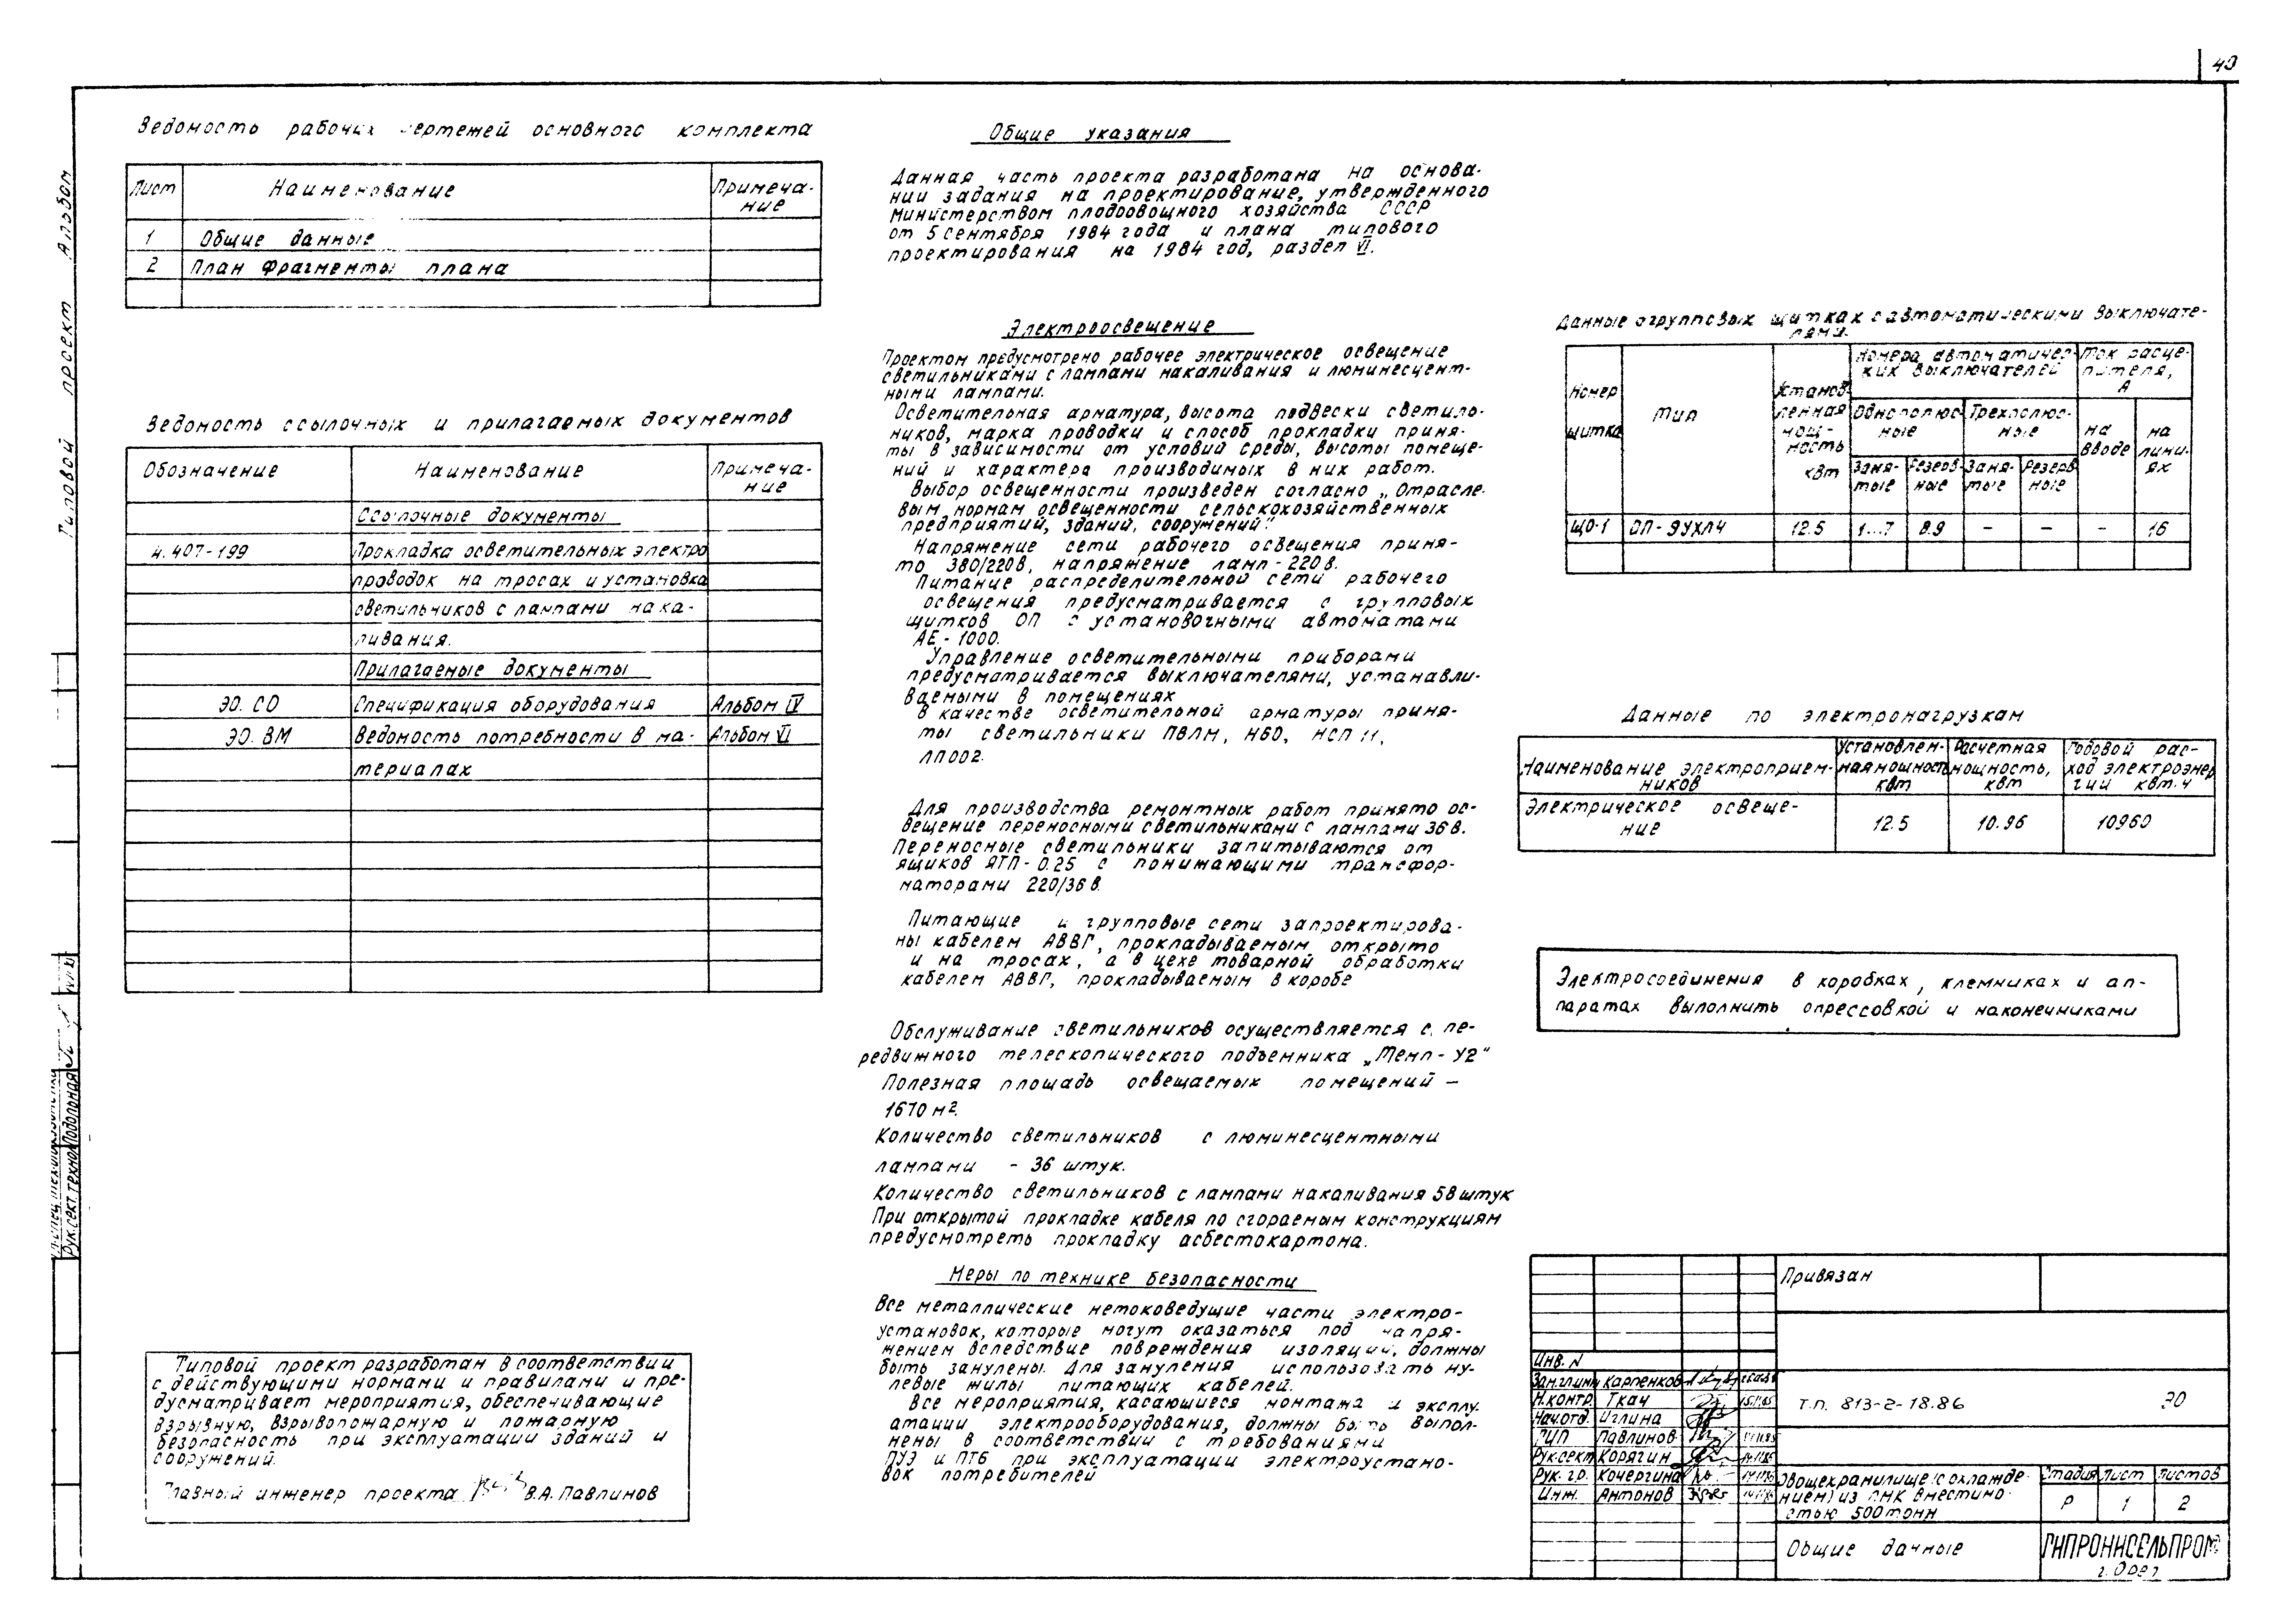 40
Типовой проект Альбом
Ведомость рабочих чертежей основного комплекта
Лист Наименование Примеча-
ние
1 Общие данные
2 План Фрагменты плана
Ведомость ссылочных и прилагаемых документов
Обозначение Наименование Примеча-
ние
Ссылочные документы
4.407-199 Прокладка осветительных электро
проводок на тросах и установка
светильников с лампами нака-
ливания.
Прилагаемые документы
ЭО. СО Спецификация оборудования Альбом IV
ЭО. ВМ Ведомость потребности в ма- Альбом VI
териалах
Типовой проект разработан в соответствии
с действующими нормами и правилами и пре-
дусматривает мероприятия, обеспечивающие
взрывную, взрывопожарную и пожарную
безопасность при эксплуатации зданий и
сооружений.
Главный инженер проекта В.А. Павлинов
Рук.сект.технол Подольная
Общие указания
Данная часть проекта разработана на основа-
нии задания на проектирование, утвержденного
Министерством плодоовощного хозяйства СССР
от 5 сентября 1984 года и плана типового
проектирования на 1984 год, раздел VI.
Электроосвещение
Проектом предусмотрено рабочее электрическое освещение
светильниками с лампами накаливания и люминесцент-
ными лампами.
Осветительная арматура, высота подвески светиль-
ников, марка проводки и способ прокладки приня-
ты в зависимости от условий среды, высоты помеще-
ний и характера производимых в них работ.
Выбор освещенности произведен согласно „Отрасле-
вым нормам освещенности сельскохозяйственных
предприятий, зданий, сооружений".
Напряжение сети рабочего освещения приня-
то 380/220в, напряжение ламп - 220в.
Питание распределительной сети рабочего
освещения предусматривается с групповых
щитков ОП с установочными автоматами
АЕ - 1000.
Управление осветительными приборами
предусматривается выключателями, устанавли-
ваемыми в помещениях
В качестве осветительной арматуры приня-
ты светильники ПВЛМ, Н60, НСП 11,
ЛП002.
Для производства ремонтных работ принято ос-
вещение переносными светильниками с лампами 36в.
Переносные светильники запитываются от
ящиков ЯТП- 0.25 с понижающими трансфор-
маторами 220/36 в.
Питающие и групповые сети запроектирова-
ны кабелем АВВГ, прокладываемым открыто
и на тросах, а в цехе товарной обработки
кабелем АВВГ, прокладываемым в коробе
Обслуживание светильников осуществляется с пе-
редвижного телескопического подъемника „Темп - У2"
Полезная площадь освещаемых помещений -
1670 м2.
Количество светильников с люминесцентными
лампами - 36 штук.
Количество светильников с лампами накаливания 58 штук
При открытой прокладке кабеля по сгораемым конструкциям
предусмотреть прокладку асбестокартона.
Меры по технике безопасности
Все металлические нетоковедущие части электро-
установок, которые могут оказаться под напря-
жением вследствие повреждения изоляции, должны
быть занулены. Для зануления использовать ну-
левые жилы питающих кабелей.
Все мероприятия, касающиеся монтажа и эксплу-
атации электрооборудования, должны быть выпол-
нены в соответствии с требованиями
ПУЭ и ПТБ при эксплуатации электроустано-
вок потребителей
Данные о групповых щитках с автоматическими выключате-
лями.
Номер щитка Тип Установ-ленная мощ-ность квт Номера автоматичес-ких выключателей Ток расце-пителя, А
Однополюс-ные Трехполюс-ные на вводе на лини-ях
Заня-тые Резерв-ные Заня-тые Резерв-ные
ЩО-1 ОП - 9УХЛ4 12.5 1...7 8.9 - - - 16
Данные по электронагрузкам
Наименование электроприем-ников Установлен-ная мощность квт Расчетная мощность, квт Годовой рас-ход электроэнер гии квт.ч
Электрическое освеще-
ние 12.5 10.96 10960
Электросоединения в коробках, клемниках и ап-
паратах выполнить опрессовкой и наконечниками
Привязан
Инв. N
Зам.гл.инж Карпенков
Н.контр. Ткач
Нач.отд. Иглина
ГИП Павлинов
Рук.сект Корягин
Рук. гр. Кочергина
Инж. Антонов
Т.П. 813-2-18.86 ЭО
Овощехранилище (с охлажде-
нием) из ЛМК вместимо-
стью 500 тонн
Стадия Лист Листов
Р 1 2
Общие данные
ГИПРОНИСЕЛЬПРОМ
г. Орел